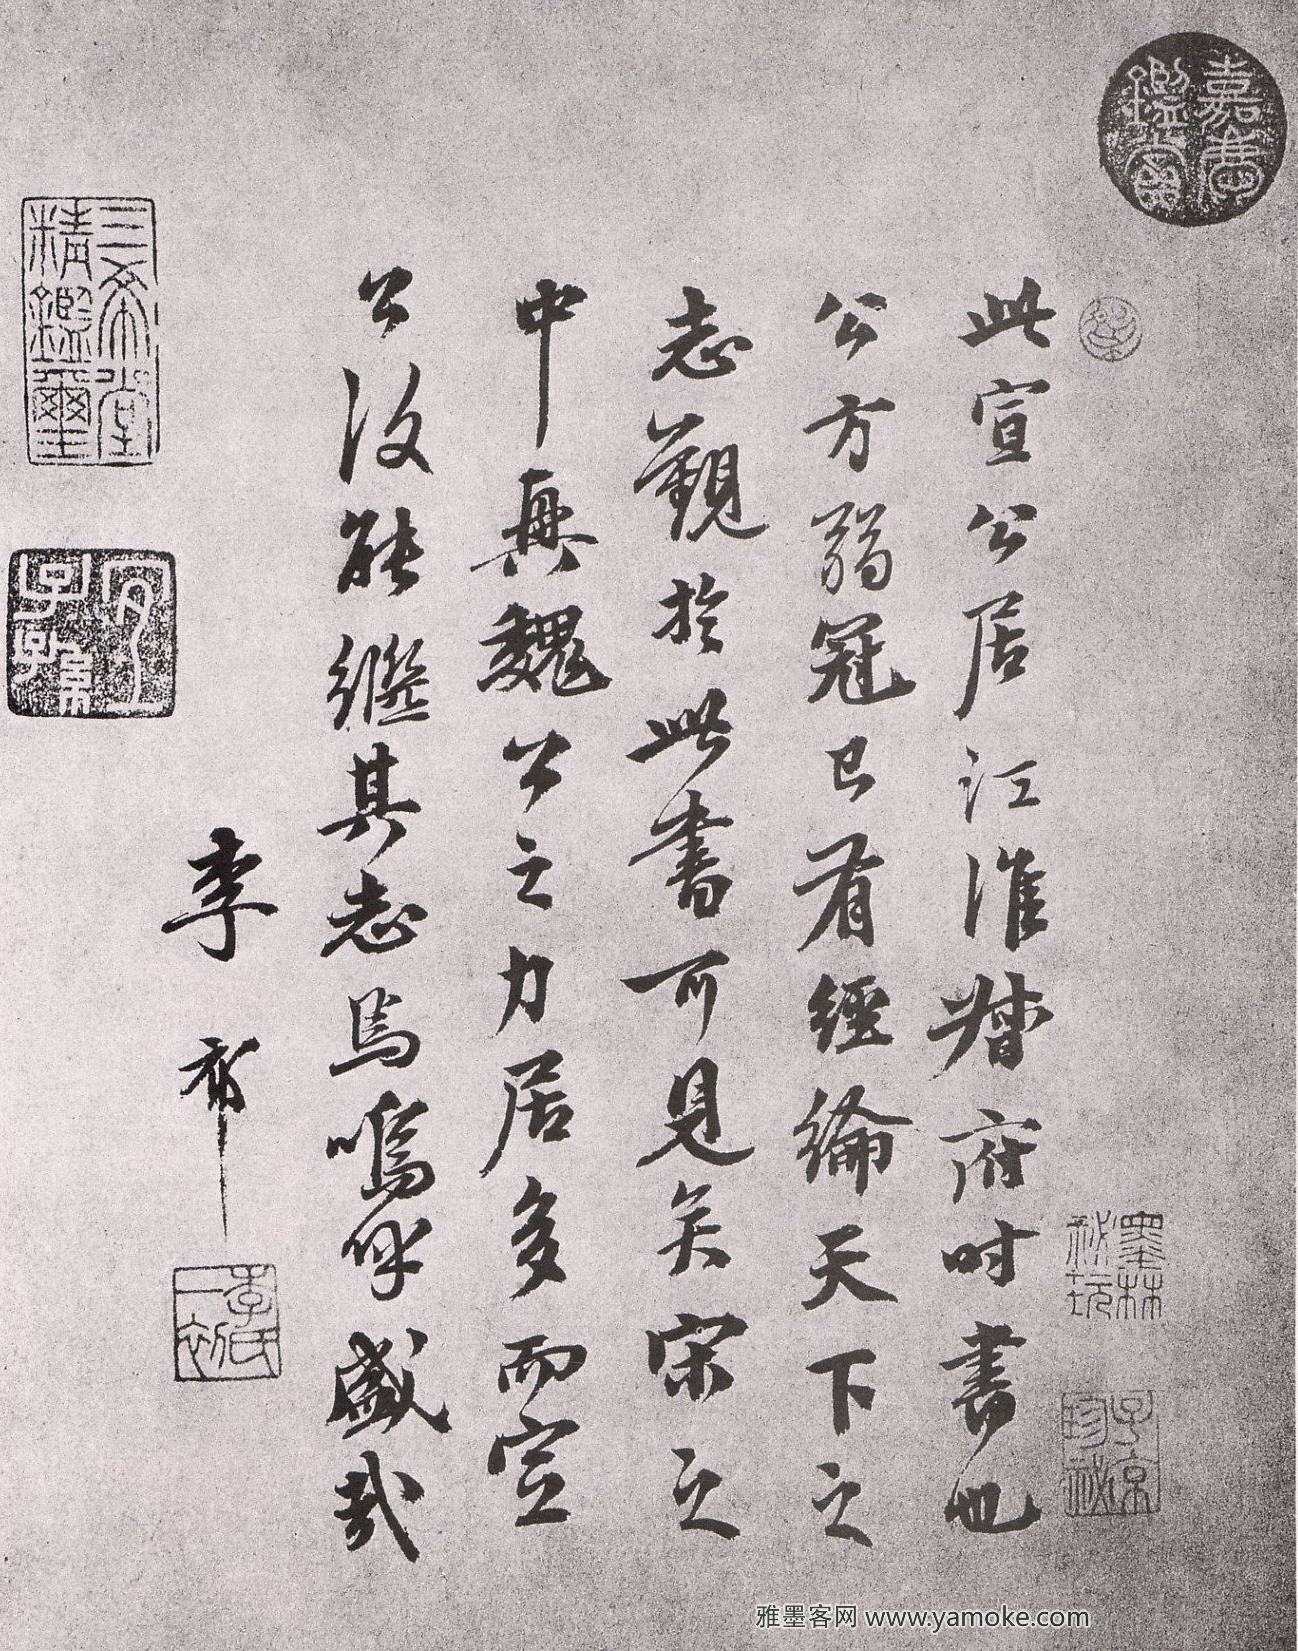 嘉慶鑑賞
此宣公居江淮督府時書也
公方弱冠已有經綸天下之
志觀於此書可見矣宋之
中興魏公之力居多而宣
公復能繼其志焉嗚呼盛哉
李祁
李氏一初
墨林秘玩
子京珍祕
三希堂精鑑璽
宜子孫
雅墨客网 www.yamoke.com